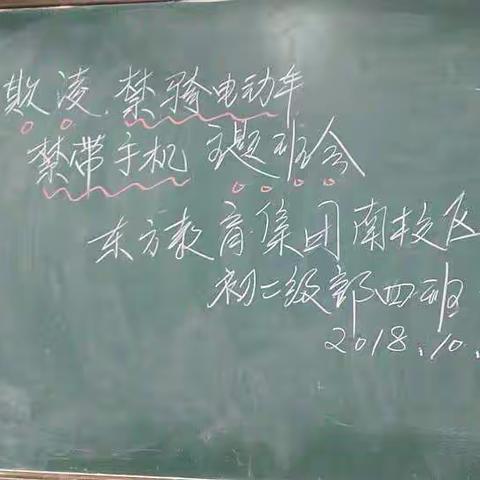 欺凌.禁骑电动车
禁带手机 主题班会
东方教育集团南校区
初二级部四班
2018.10.